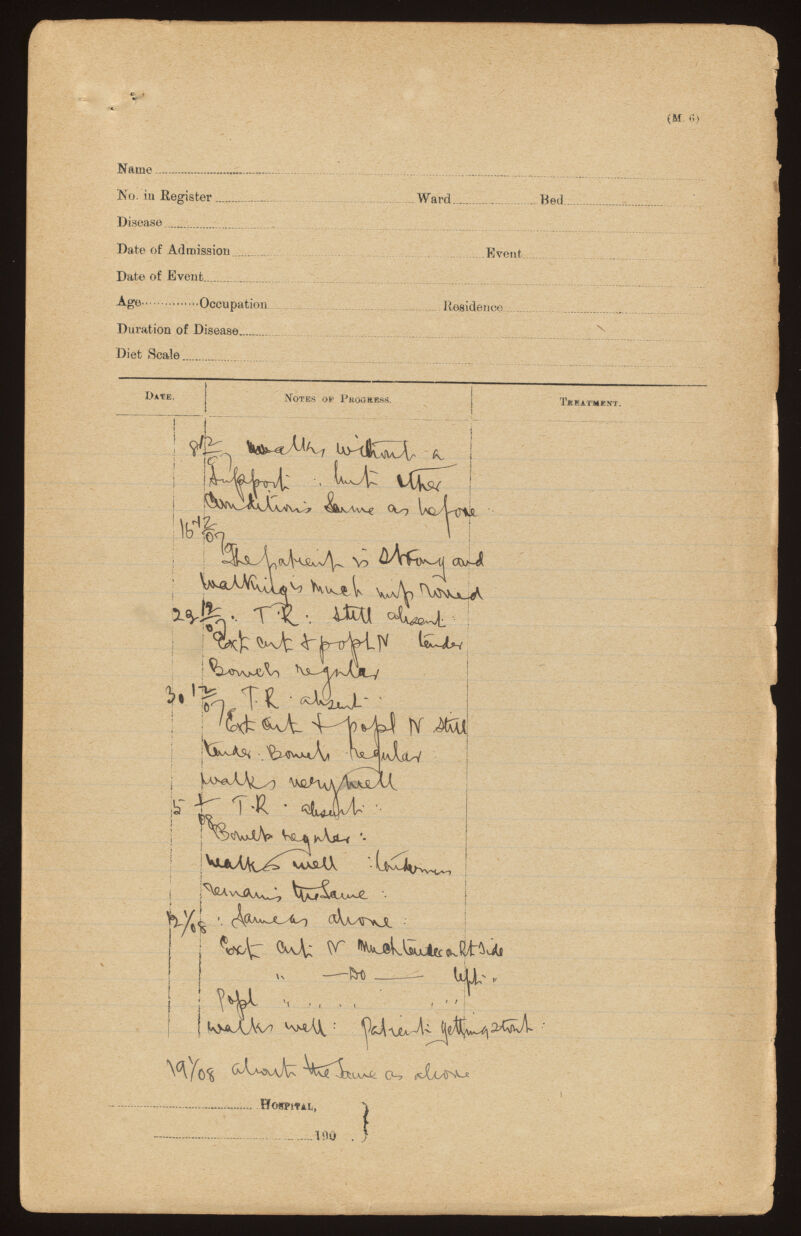 (M. 6)
Name
No. in Register Ward Bed
Disease
Date of Admission Event
Date of Event
Age Occupation Residence
Duration of Disease
Diet Scale
DATE. NOTES OF PROGRESS. TREATMENT.
8 12/07 walks without a
Support : but other
Conditions Same as before
16 12/07
The patient is Strong and
walking is much improved
23 12/07 : T. R. : Still absent :
Ext Cut & popl N tender
Bowels regular
30 12/07 T. R. absent
Ext Cut & popl N still
tender : Bowels regular
walks very well
5 1/08 T. R. absent :
Bowels regular :
walks well : tenderness
remains the Same :
12 1/08 : Same as above :
Ext Cut N Much tender on Rt Side
" — Do — left "
Popl " " " " " "
walks well : Patient getting stout :
19 1/08 about the Same as above
HOSPITAL,
190 . }